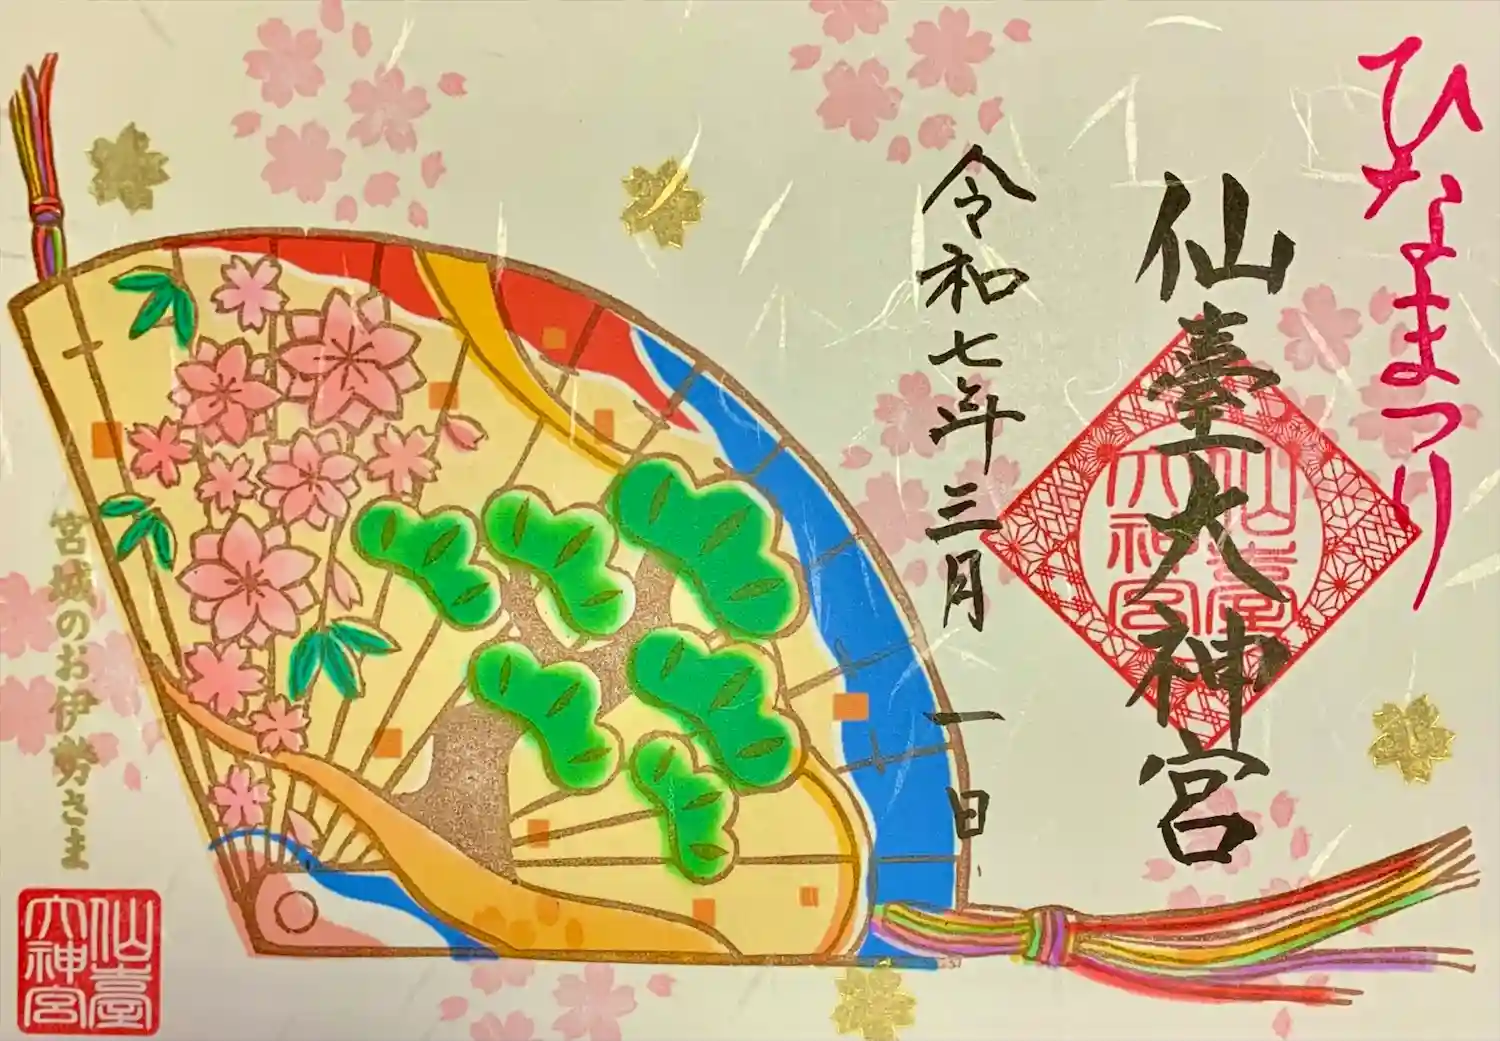 ひなまつり
仙臺大神宮
仙臺
大神宮
令和七年三月一日
宮城のお伊勢さま
仙臺
大神宮